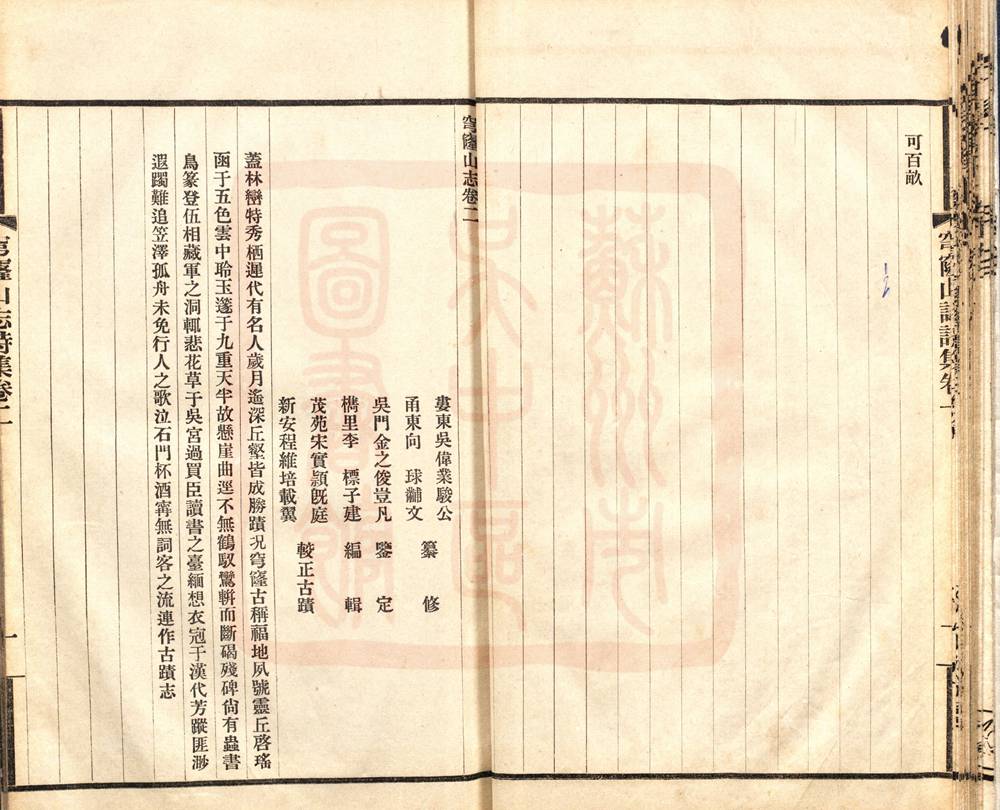 可百畝
穹窿山志卷二
婁東吳偉業駿公
甬東向　球黼文
纂　修
吳門金之俊豈凡
鑒　定
檇里李　標子建
編　輯
茂苑宋實穎旣庭
新安程維培載翼
較正古蹟
蓋林巒特秀栖遲代有名人歲月遙深丘壑皆成勝蹟况穹窿古稱福地夙號靈丘啓瑤
函于五色雲中聆玉邃于九重天半故懸崖曲逕不無鶴馭鸞輧而斷碣殘碑尙有蟲書
鳥篆登伍相藏軍之洞輒悲花草于吳宮過買臣讀書之臺緬想衣冠于漢代芳蹤匪渺
遐躅難追笠澤孤舟未免行人之歌泣石門杯酒寗無詞客之流連作古蹟志
穹窿山志詩集卷二
一